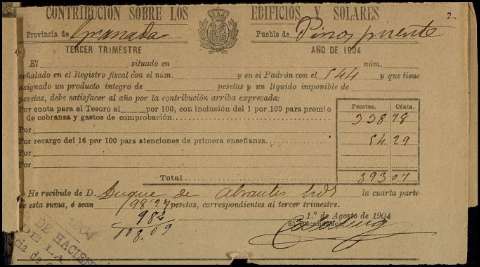 CONTRIBUCIÓN SOBRE LOS EDIFICIOS Y SOLARES
Provincia de Granada Pueblo de Pinos puente
TERCER TRIMESTRE AÑO DE 1904
EN situado en núm.
señalado en el Registro fiscal con el núm. y en el Padrón con el 544 y que tiene
asignado un producto íntegro de pesetas y un líquido imponible de
pesetas, debe satisfacer al año por la contribución arriba expresada:
Pesetas. Cénts.
Por cuota para el Tesoro al por 100, con inclusión del 1 por 100 para premio
de cobranza y gastos de comprobación. 338 78
Por
Por recargo del 16 por 100 para atenciones de primera enseñanza. 54 29
Por
Total 393 07
He recibido de D. Duque de Abrantes la cuarta parte
de esta suma, ó sean 98 27 pesetas, correspondientes al tercer trimestre.
9 82
108.09
1.º de Agosto de 1904
DE HACIEN
DE LA